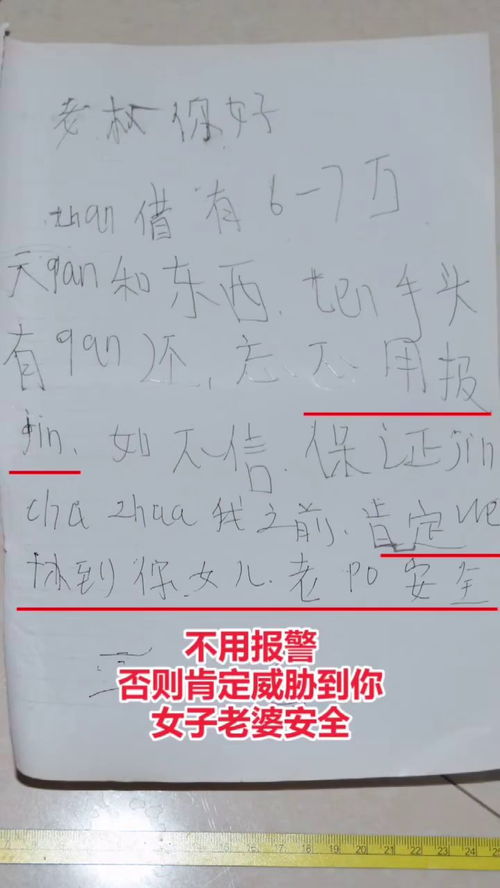 老叔你好
than借有6-7万
天qan和东西.ten手头
有qan还,不用报
jin.如不信.保证jin
cha zhua我之前.肯定ue
胁到你女儿.老po安全
不用报警
否则肯定威胁到你
女子老婆安全